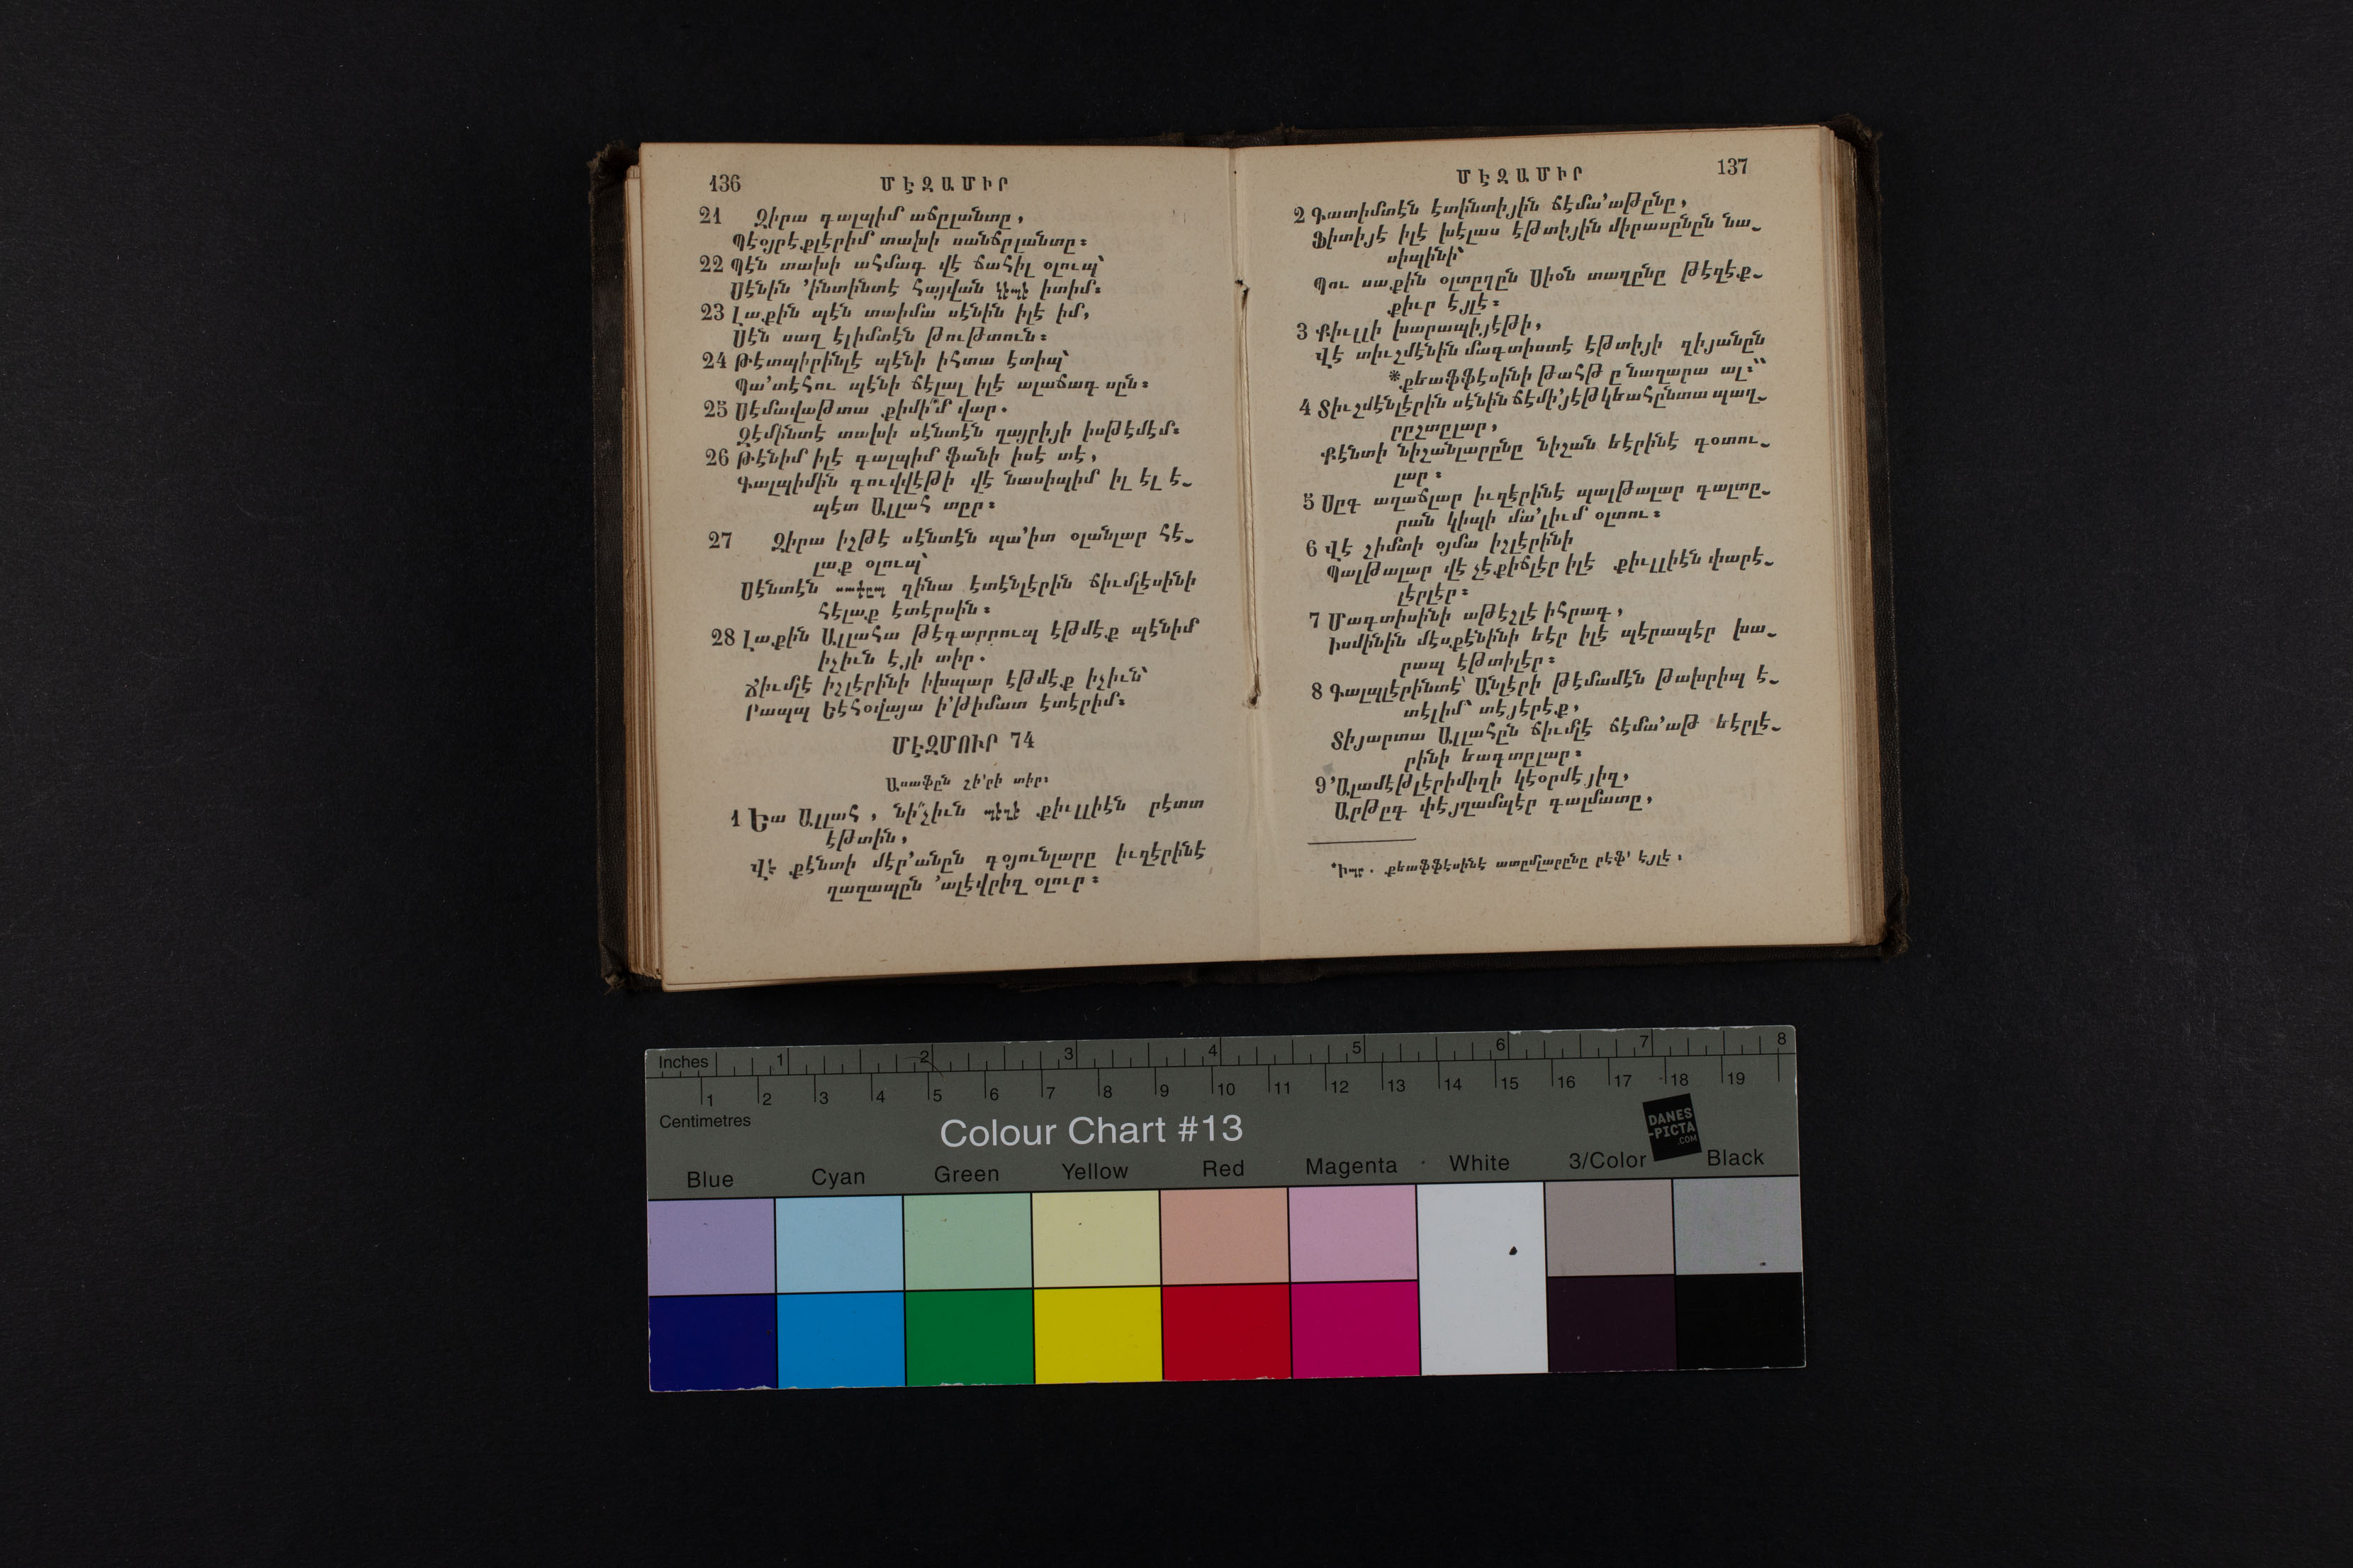 136 ՄԷԶԱՄԻՐ
21 Զիրա գալպիմ աճըլանտը,
Պէօյրէքլէրիմ տախի սանճըլանտը։
22 Պէն տախի ահմագ վէ ճահիլ օլուպ՝
Սէնին ՚ինտինտէ հայվան կէպէ իտիմ։
23 Լաքին պէն տաիմա սէնին իլէ իմ,
Սէն սաղ էլիմտէն թութտուն։
24 Թէտպիրինլէ պէնի իհտա էտիպ՝
Պա՚տէհու պէնի ճէլալ իլէ ալաճագ սըն։
25 Սէմավաթտա քիմի՞մ վար.
Զէմինտէ տախի սէնտէն ղայրիյի իսթէմէմ։
26 Թէնիմ իլէ գալպիմ ֆանի իսէ տէ,
Գալպիմին գուվվէթի վէ նասիպիմ իլ էլ է֊
պէտ Ալլահ տըր։
27 Զիրա իշթէ սէնտէն պա՚իտ օլանլար հէ֊
լաք օլուպ՝
Սէնտէն սափըպ զինա էտէնլէրին ճիւմլէսինի
հէլաք էտէրսին։
28 Լաքին Ալլահա թէգարրուպ էթմէք պէնիմ
իչիւն էյի տիր.
Ճիւմլէ իշլէրինի իխպար էթմէք իչիւն՝
Րապպ Եէհօվայա ի՚թիմատ էտէրիմ։
ՄԷԶՄՈՒՐ 74
Ասաֆըն շի՚րի տիր։
1 Եա Ալլահ, նի՞չիւն պէզէ քիւլլիէն րէտտ
էթտին,
Վէ քէնտի մէր՚անըն գօյունլարը իւզէրինէ
ղազապըն ՚ալէվրիզ օլուր։
ՄԷԶԱՄԻՐ 137
2 Գատիմտէն էտինտիյին ճէմա՚աթընը,
Ֆիտիյէ իլէ խէլաս էթտիյին միրասընըն նա֊
սիպինի՝
Պու սաքին օլտըղըն Սիօն տաղընը թէզէք֊
քիւր էյլէ։
3 Քիւլլի խարապիյէթի,
Վէ տիւշմէնին մագտիստէ էթտիյի զիյանըն
*քեաֆֆէսինի թահթ ը նազարա ալ։՝՝
4 Տիւշմէնլէրին սէնին ճէմի՚յէթկեահընտա պաղ֊
րըշտըլար,
Քէնտի նիշանլարընը նիշան եէրինէ գօտու֊
լար։
5 Սըգ աղաճլար իւզէրինէ պալթալար գալտը֊
րան կիպի մա՚լիւմ օլտու։
6 Վէ շիմտի օյմա իշլէրինի
Պալթալար վէ չէքիճլէր իլէ քիւլլիէն փարէ֊
լէրլէր։
7 Մագտիսինի աթէշլէ իհրագ,
Իսմինին մէսքէնինի եէր իլէ պէրապէր խա֊
րապ էթտիլէր։
8 Գալպլէրինտէ՝ Անլէրի թէմամէն թախրիպ է֊
տէլիմ՝ տէյէրէք,
Տիյարտա Ալլահըն ճիւմլէ ճէմա՚աթ եէրլէ֊
րինի եագտըլար։
9 ՚Ալամէթլէրիմիզի կէօրմէյիզ,
Արթըգ փէյղամպէր գալմատը,
*Իպր. քեաֆֆէսինէ ատըմլարընը րէֆ՚ էյլէ.
Inches 1 2 3 4 5 6 7 8
1 2 3 4 5 6 7 8 9 10 11 12 13 14 15 16 17 18 19
Centimetres
Colour Chart #13
DANES
-PICTA
.COM
Blue Cyan Green Yellow Red Magenta White 3/Color Black